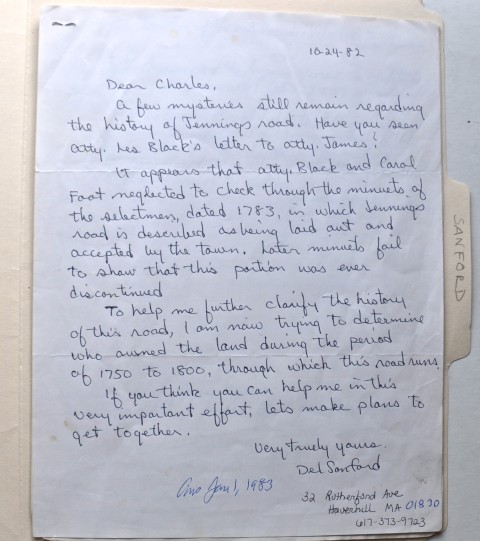 10-24-82
Dear Charles,
A few mysteries still remain regarding
the history of Jennings road. Have you seen
atty. Les Black's letter to atty. James?
It appears that atty. Black and Carol
Foot neglected to check through the minuets of
the selectmen, dated 1783, in which Jennings
road is described as being laid out and
accepted by the town. Later minuets fail
to show that this portion was ever
discontinued
To help me further clarify the history
of this road, I am now trying to determine
who owned the land during the period
of 1750 to 1800, through which this road runs.
If you think you can help me in this
very important effort, lets make plans to
get together.
Very truly yours.
Del Sanford
32 Rutherford Ave
Haverhill MA 01830
617-373-9723
Ans Jan 1, 1983
SANFORD